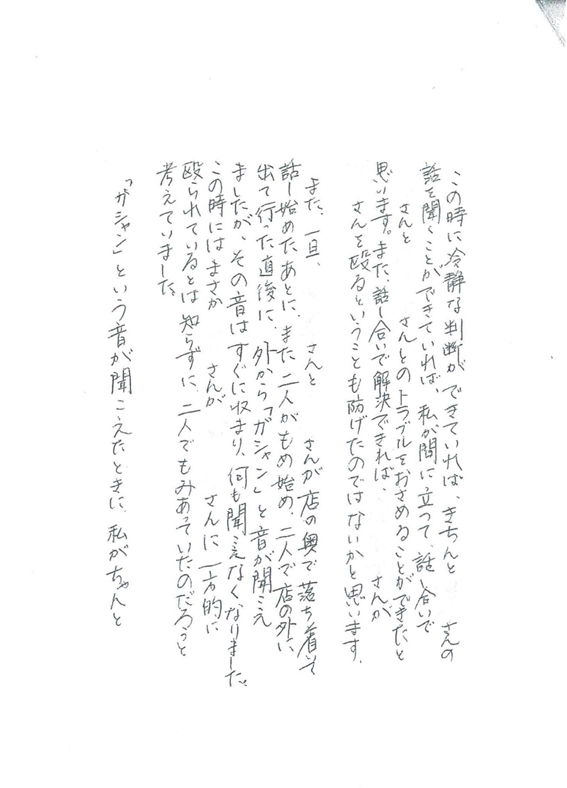 この時に冷静な判断ができていれば、きちんと　　　さんの
話を聞くことができていれば、私が間に立って、話し合いで
　　さんと　　　さんとのトラブルをおさめることができたと
思います。また、話し合いで解決できれば、　　　さんが
　　さんを殴るということも防げたのではないかと思います。
また、一旦、　　　さんと　　　さんが店の奥で落ち着いて
話し始めたあとに、また二人がもめ始め、二人で店の外に
出て行った直後に、外から「ガシャン」と音が聞こえ
ましたが、その音はすぐに収まり、何も聞こえなくなりました。
この時にはまさか　　　さんが　　　さんに一方的に
殴られているとは知らずに、二人でもみあっていたのだろうと
考えていました。
「ガシャン」という音が聞こえたときに、私がちゃんと